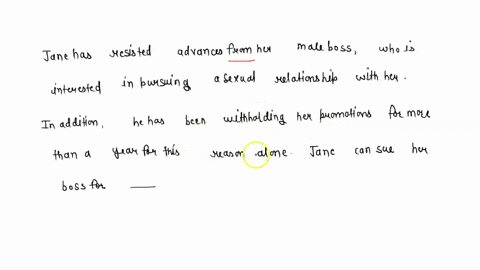 Jane has resisted advances from her male boss, who is
interested in pursuing a sexual relationship with her.
In addition, he has been withholding her promotions for more
than a year for this reason alone. Jane can sue her
boss for ___